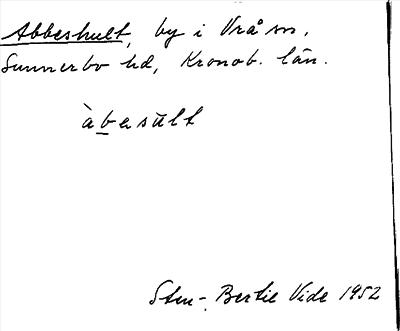 Abbeshult, by i Vrå sn,
Sunnerbo hd, Kronob. län.
àbesult
Sten-Bertil Vide 1952